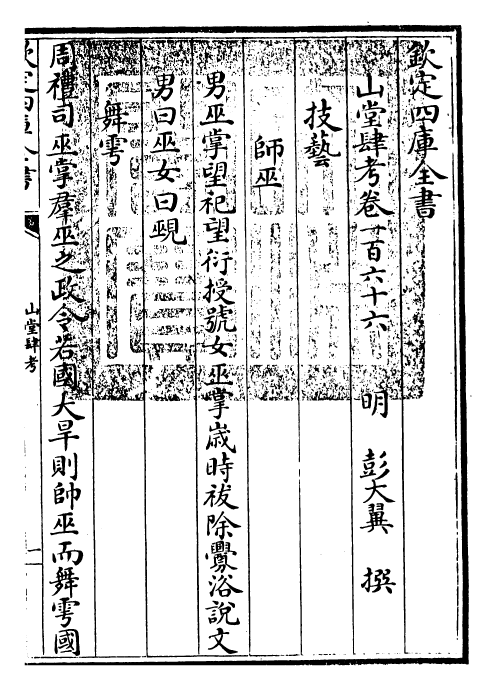 欽定四庫全書
山堂肆考卷一百六十六　明　彭大翼　撰
技藝
師巫
男巫掌望祀望衍授號女巫掌歳時祓除釁浴說文
男曰巫女曰覡
舞雩
周禮司巫掌羣巫之政令若國大旱則帥巫而舞雩國
欽定四庫全書
山堂肆考
一